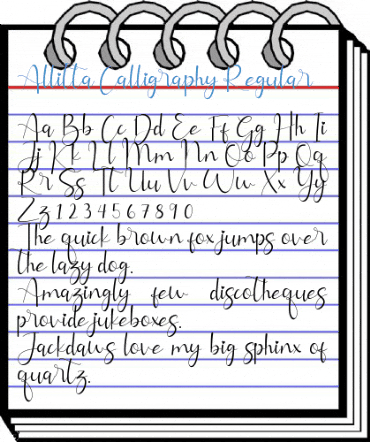 Allitta Calligraphy Regular
Aa Bb Cc Dd Ee Ff Gg Hh Ii
Jj Kk Ll Mm Nn Oo Pp Qq
Rr Ss Tt Uu Vv Ww Xx Yy
Zz 1 2 3 4 5 6 7 8 9 0
The quick brown fox jumps over
the lazy dog.
Amazingly few discotheques
provide jukeboxes.
Jackdaws love my big sphinx of
quartz.